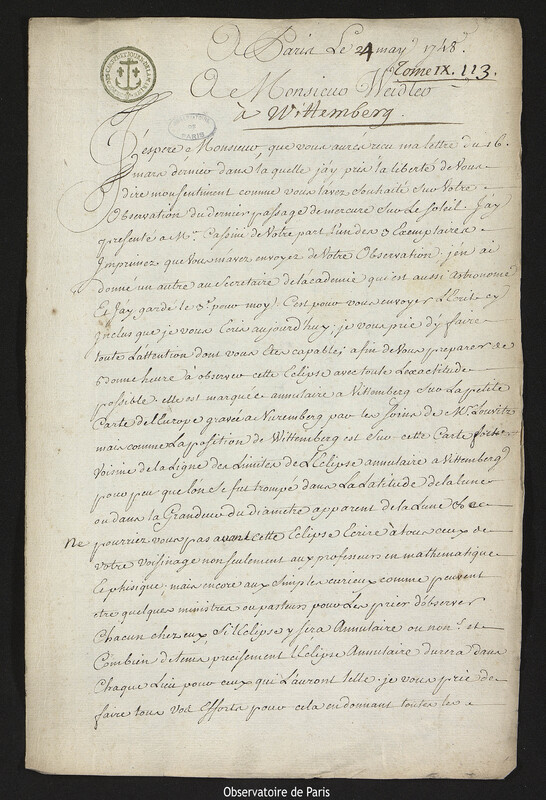 A Paris Le 24 may 1748.
Tome IX. 113.
A Monsieur Weidler
à Wittemberg.
OBSERVATOIRE
DE
PARIS
J'espere Monsieur que vous aures reçu ma lettre du 16.
mars dernier dans la quelle j'ay pris la liberté de Vous
dire mon sentiment comme vous l'avez souhaité sur Votre
Observation du dernier passage de mercure sur Le Soleil. J'ay
presenté a Mr. Cassini de Votre part l'un des 3 Exemplaires
Imprimez que vous m'avez envoyez de Votre Observation. j'en ai
donne un autre au Secretaire de l'academie qui est aussi Astronome
Et J'ay gardé le 3e. pour moy. C'est pour vous envoyer L'Ecrit cy
Inclus que je vous Ecris aujourd'huy; je vous prie d'y faire
toute L'attention dont vous Etes capable; afin de Vous preparer de
bonne heure à observer cette Eclipse avec toute L'exactitude
possible. elle est marquée annulaire a Vittemberg sur La petite
Carte de L'Europe gravée a Nuremberg par les soins de Mr. Lowitz
mais comme La position de Wittemberg est Sur cette Carte fort
Voisine de la Ligne des Limites de L'Eclipse annulaire a Vittemberg
pour peu que l'on se fut trompé dans La Latitude de la lune
ou dans la Grandeur du Diametre apparent de la Lune &c
ne pourriez vous pas avant cette Eclipse Ecrire à tous ceux de
votre voisinage non seulement aux professeurs en mathématique
et phisique, mais encore aux Simples curieux comme peuvent
etre quelques ministres ou pasteurs pour Les prier d'observer
Chacun chez eux, Si L'Eclipse y sera Annulaire ou non; et
Combien de tems precisement L'Eclipse Annulaire durera dans
Chaque Lieu pour ceux qui L'auront telle; je vous prie de
faire tous vos Efforts pour cela en donnant toutes les
Observatoire de Paris